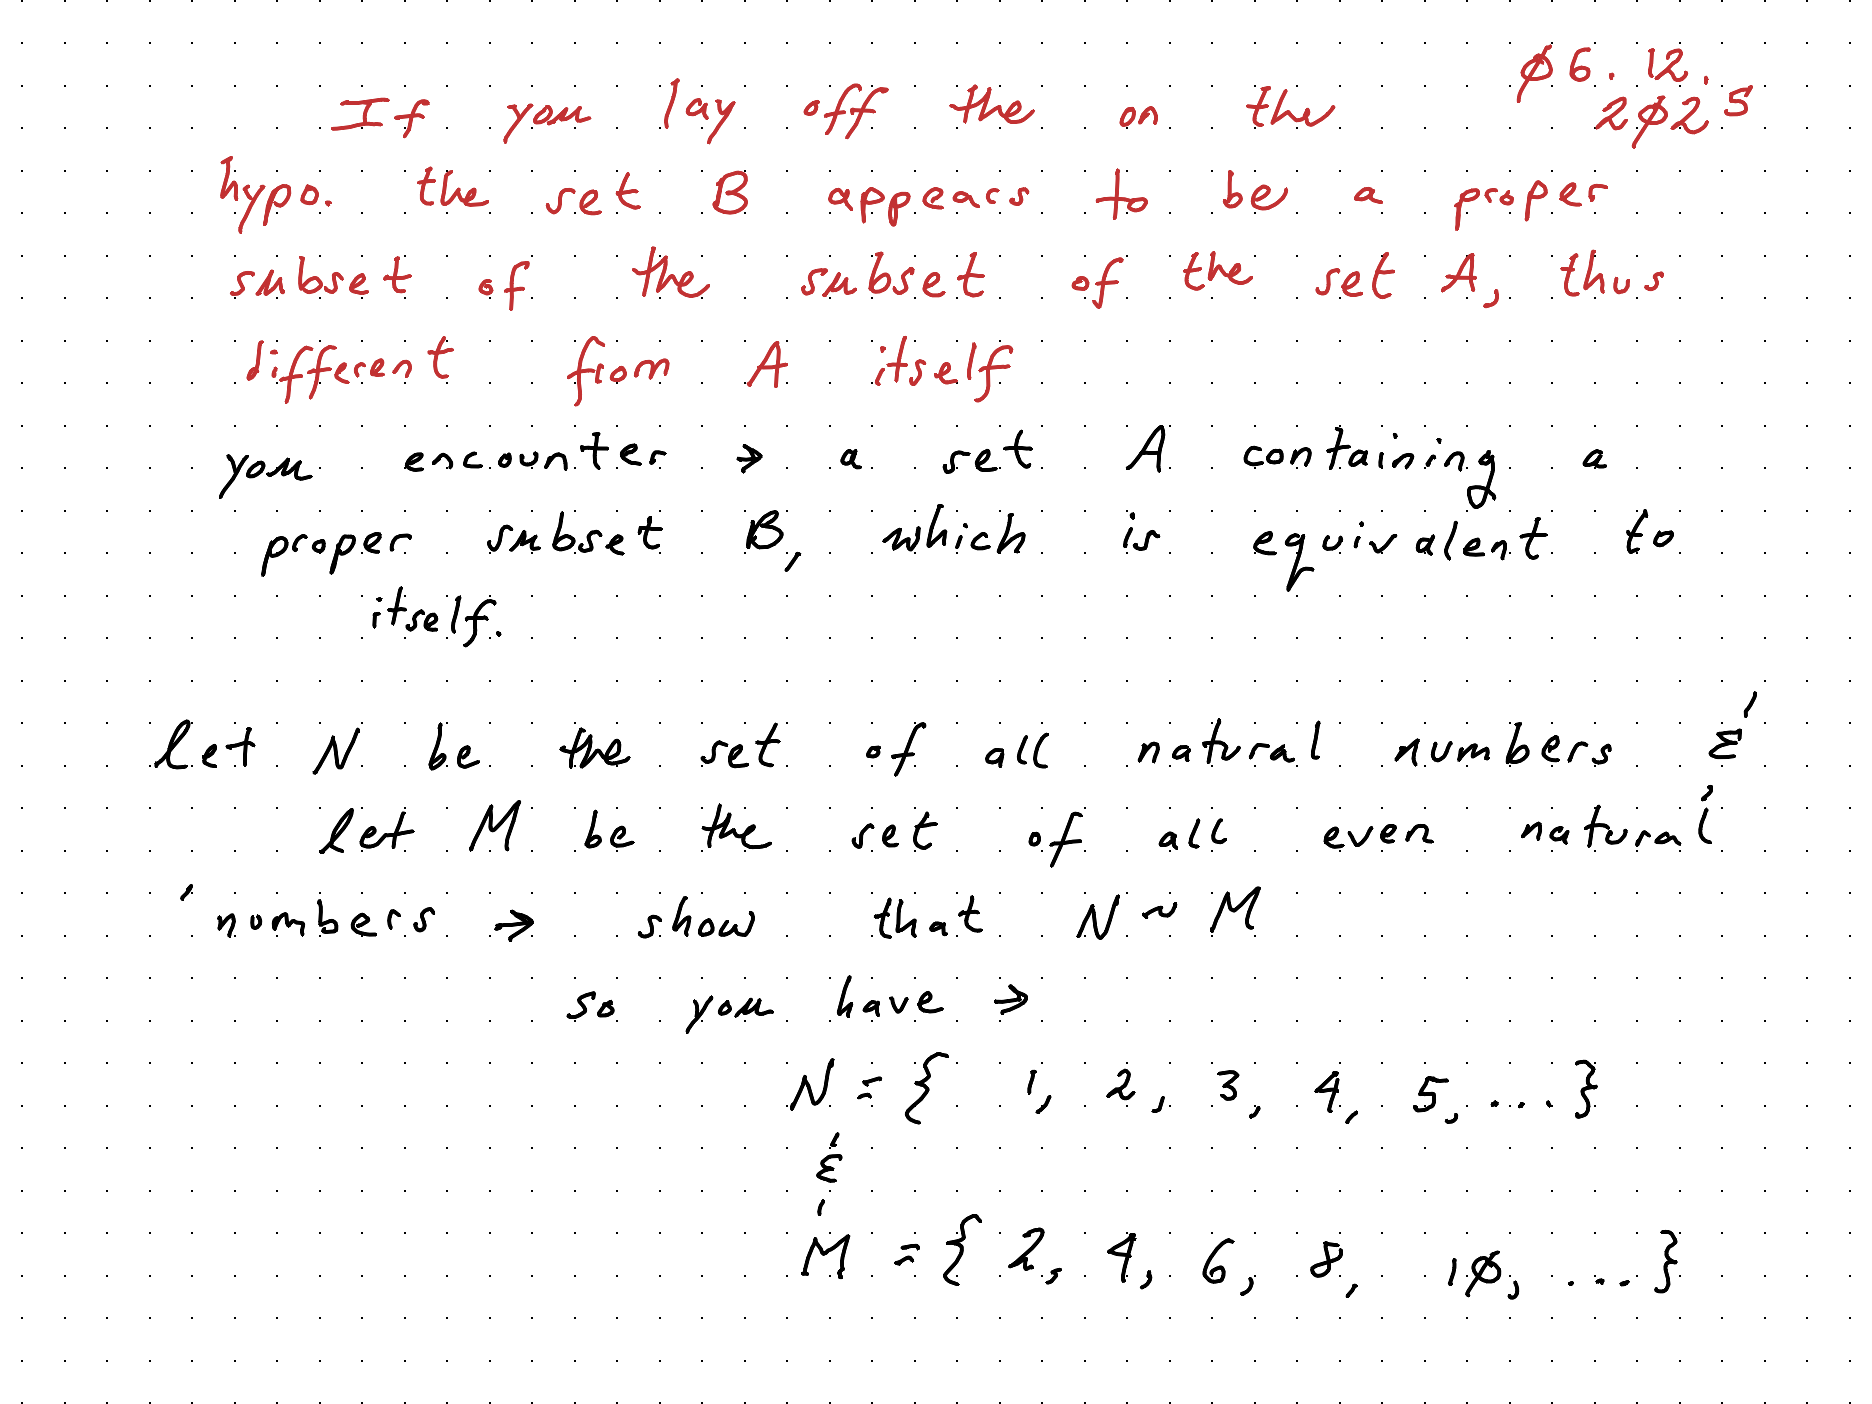 ø6.12.
If you lay off the on the 2ø25
hypo. the set B appears to be a proper
subset of the subset of the set A, thus
different from A itself
you encounter → a set A containing a
proper subset B, which is equivalent to
itself.
let N be the set of all natural numbers &
let M be the set of all even natural
numbers → show that N ~ M
so you have →
N = { 1, 2, 3, 4, 5, ... }
&
M = { 2, 4, 6, 8, 1ø, ... }